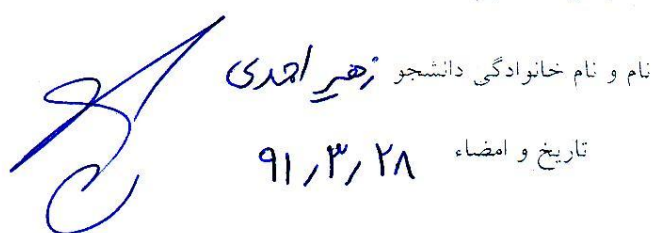 نام و نام خانوادگی دانشجو زهیر احمدی
تاریخ و امضاء ۹۱٫۳٫۲۸